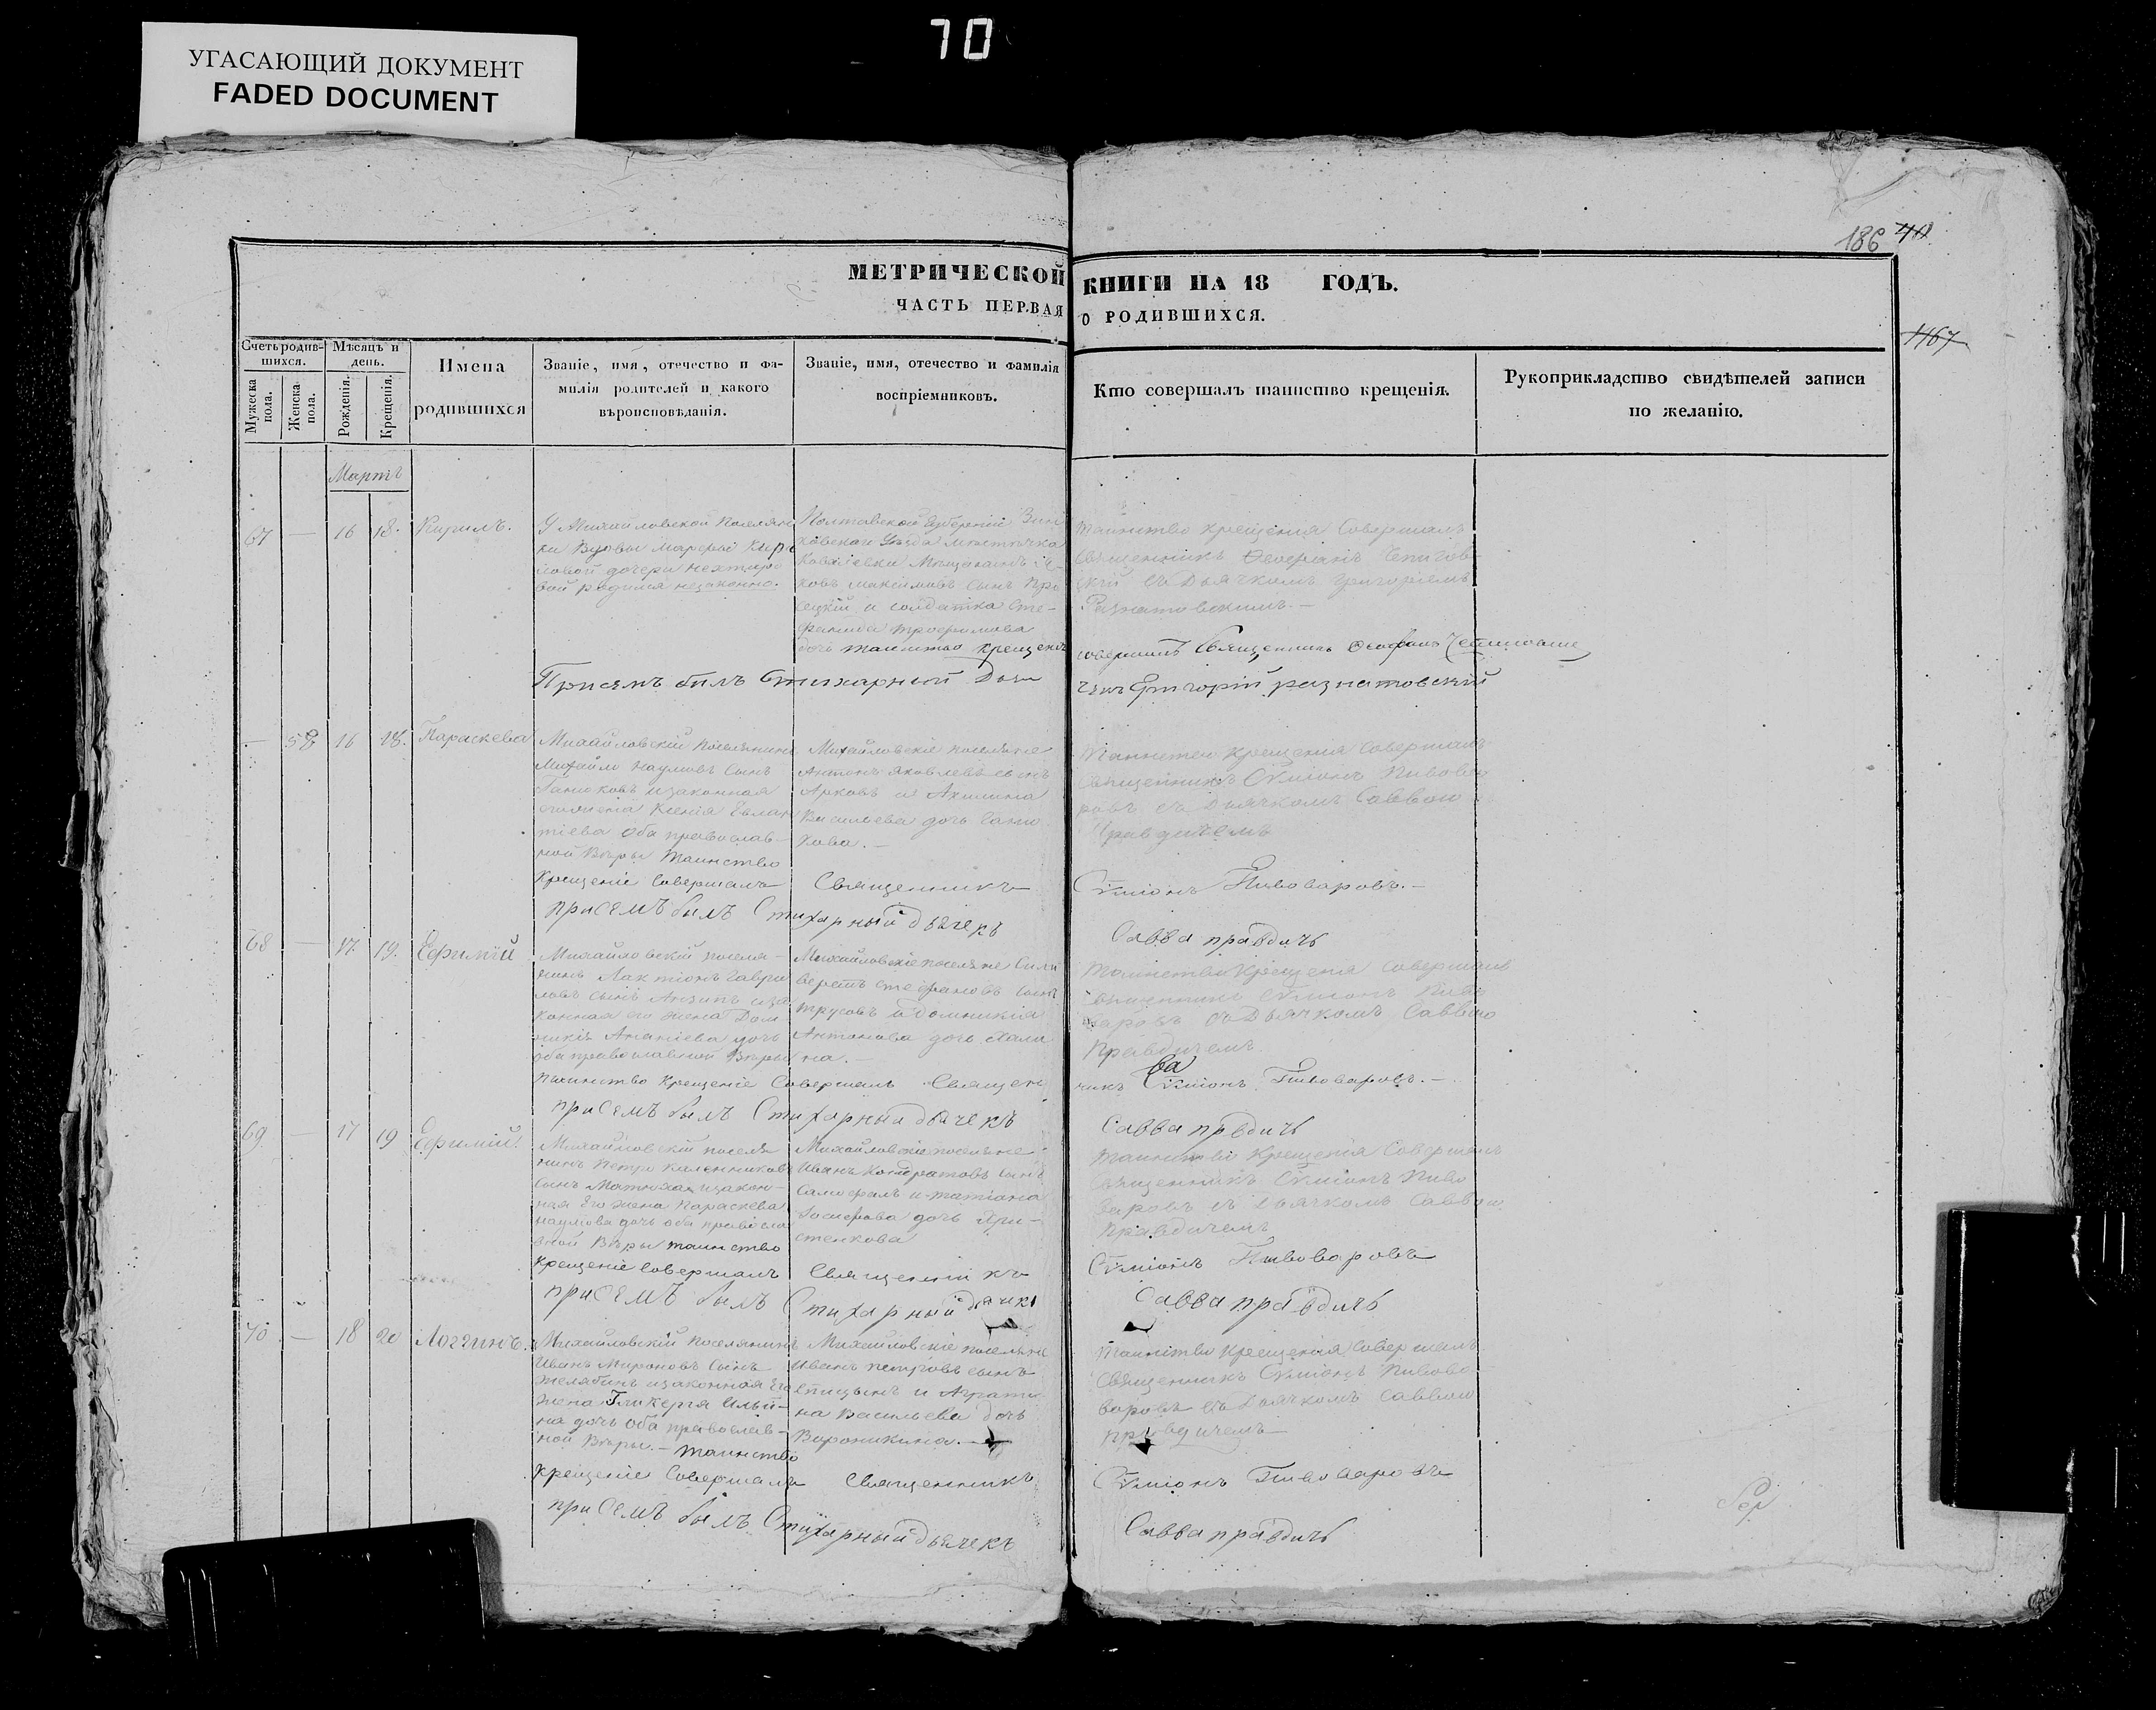 70
УГАСАЮЩИЙ ДОКУМЕНТ
FADED DOCUMENT
186
1167
МЕТРИЧЕСКОЙ КНИГИ НА 18 ГОДЪ.
ЧАСТЬ ПЕРВАЯ О РОДИВШИХСЯ.
Счетъ родив-
шихся.
Мужеска
пола.
Женска
пола.
Мѣсяцъ и
день.
Рожденія.
Крещенія.
Имена
родившихся
Званіе, имя, отечество и фа-
милія родителей и какого
вѣроисповѣданія.
Званіе, имя, отечество и фамилія
воспріемниковъ.
Кто совершалъ таинство крещенія.
Рукоприкладство свидѣтелей записи
по желанію.
Мартъ
67 — 16 18. Кирилъ.
У Михайловской поселян
ки Вдовы Марфы Кири
ловой дочери
вой родился незаконно.
Полтавской Губерніи Зин
ковскаго Уѣзда мѣстечка
Мѣщанинъ Я-
ковъ Максимовъ сынъ
и солдатка Сте-
фанида Трофимова
дочь таинство крещенія
Таинство крещения Совершалъ
священникъ Ѳеофанъ
съ Дьячкомъ Григоріемъ
Разнатовскимъ.—
совершалъ Священникъ Ѳеофанъ
Присемъ былъ Стихарный Дья
чекъ Григорій разнатовский
— 58 16 18. Параскева
Михайловскій поселянинъ
Михайло Наумовъ сынъ
Ганжовъ изаконная
Ксенія Евлам
піева оба православ-
ной Вѣры Таинство
Крещеніе Совершалъ Священникъ
Михайловскіе поселяне
Антонъ Яковлевъ сынъ
Арковъ и Акилина
Васильева дочь
кова.—
Таинство Крещения Совершалъ
Священникъ Сѵміонъ Пивова
ровъ съ Дьячкомъ Саввою
Правдичемъ
Сѵміонъ Пивоваровъ.—
присемъ былъ Стихарный дьячекъ
Савва правдичъ
68 — 17. 19. Ефимій
Михайловскій поселя-
нинъ Лактіонъ Гаври
ловъ сынъ иза
конная его жена Дом
никія Ананіева дочь
оба православной Вѣры
Михайловскіе поселяне Сели
верстъ Стефановъ сынъ
Трусовъ и Домникія
Антонова дочь Хали
на.—
Таинство Крещения Совершалъ
священникъ Сѵміонъ Пиво
варовъ съ Дьячкомъ Саввою
Правдичемъ
таинство Крещеніе Совершалъ Священ
никъ Сѵміонъ Пивоваровъ.—
ва
присемъ былъ Стихарный дьячекъ
Савва првдичъ
69. — 17 19 Ефимій.
Михайловскій поселя
нинъ Петро
сынъ изакон-
ная Его жена Параскева
Наумова дочь оба правосла
вной Вѣры таинство
Крещеніе Совершалъ Священникъ
Михайловскіе поселяне
Иванъ Кондратовъ сынъ
и Татіана
дочь При-
стенкова
Таинство Крещения Совершалъ
Священникъ Сѵміонъ Пиво
варовъ съ Дьячкомъ Саввою
Правдичемъ
Сѵміонъ Пивоваровъ
присемъ былъ Стихарный дьячекъ
Савва правдичъ
70. — 18 20 Логгинъ.
Михайловскій Поселянинъ
Иванъ Мироновъ Сынъ
Желябинъ изаконная Его
жена Гликерія Ильи-
на дочь оба православ-
ной Вѣры.— таинство
Крещеніе Совершалъ Священникъ
Михайловскіе поселяне
Иванъ Петровъ сынъ
Спицынъ и Агрипи
на Васильева дочь
Воронихина.—
Таинство Крещения Совершалъ
Священникъ Сѵміонъ Пивова
варовъ съ Дьячкомъ Саввою
правдичемъ
Сѵміонъ Пивоваровъ
присемъ былъ Стихарный дьячекъ
Савва правдичъ